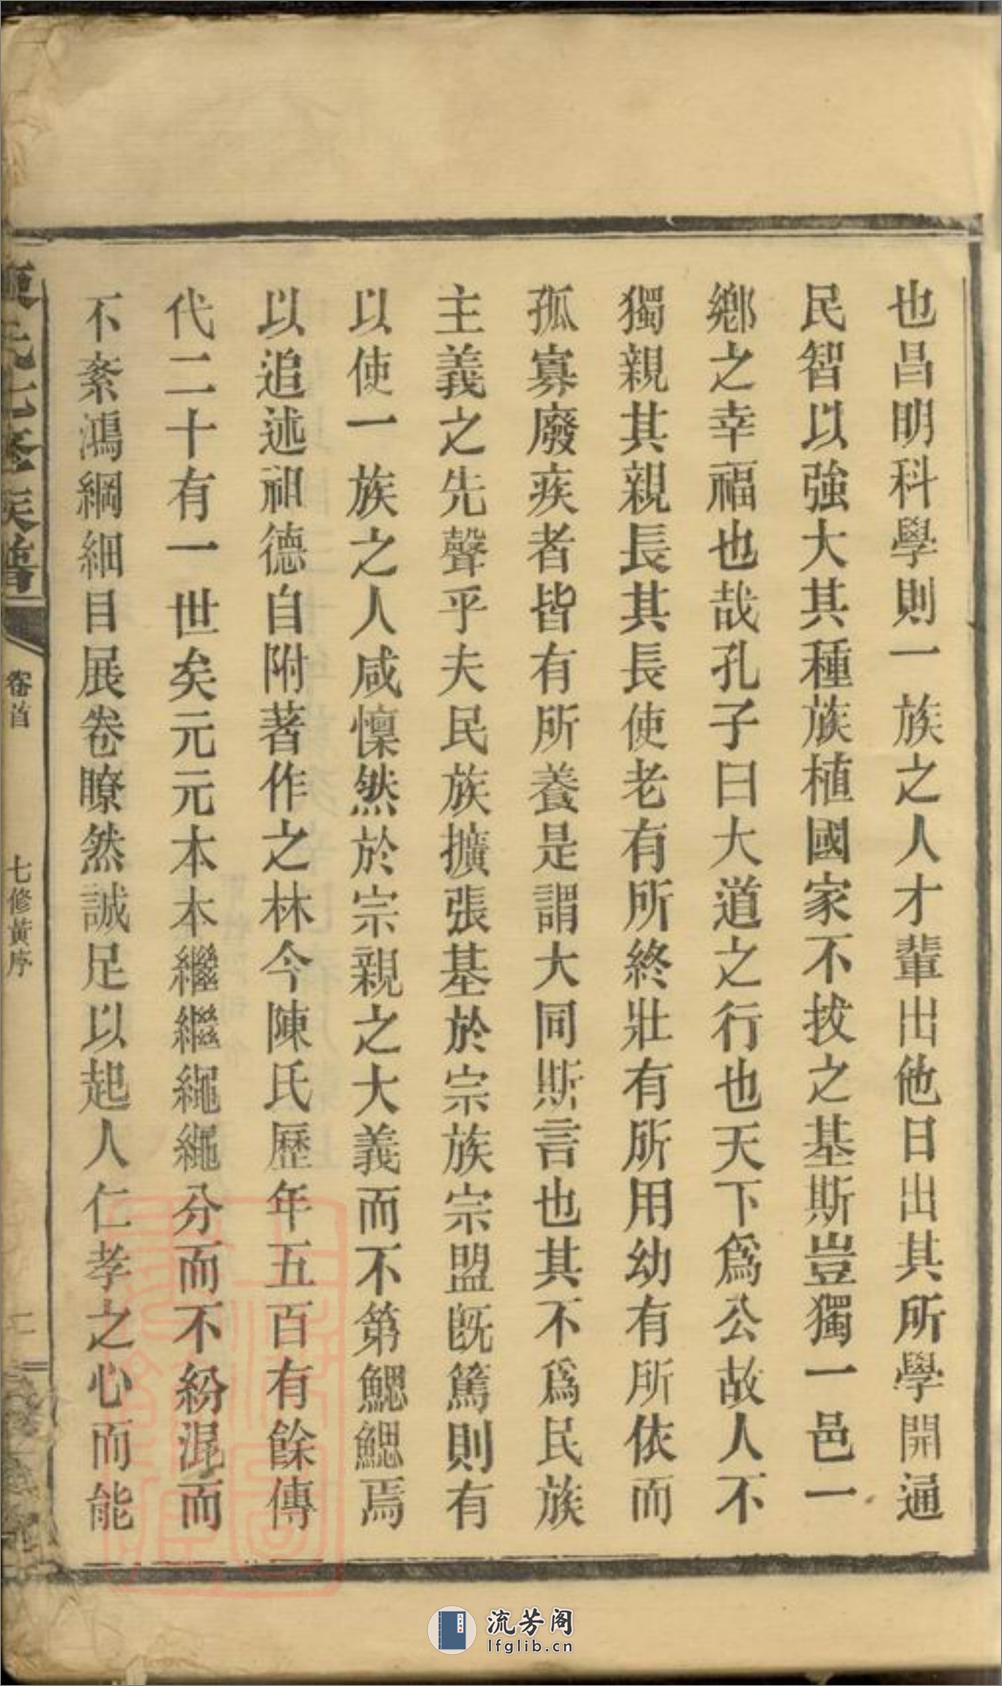 也昌明科學則一族之人才輩出他日出其所學開通
民智以強大其種族植國家不拔之基斯豈獨一邑一
鄉之幸福也哉孔子曰大道之行也天下爲公故人不
獨親其親長其長使老有所終壯有所用幼有所依而
孤寡廢疾者皆有所養是謂大同斯言也其不爲民族
主義之先聲乎夫民族擴張基於宗族宗盟既篤則有
以使一族之人咸懍然於宗親之大義而不第鰓鰓焉
以追述祖德自附著作之林今陳氏歷年五百有餘傳
代二十有一世矣元元本本繼繼繩繩分而不紛混而
不紊鴻綱細目展卷瞭然誠足以起人仁孝之心而能
陳氏七修族譜
卷首
七修黃序
二
流芳阁
lfglib.cn